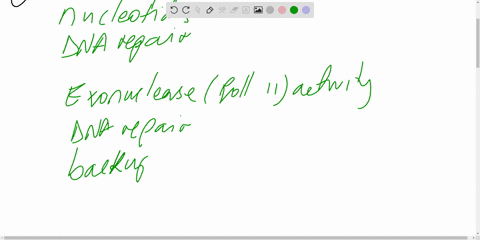 nucleotides
DNA repair
Exonuclease (Poll II) activity
DNA repair
backup